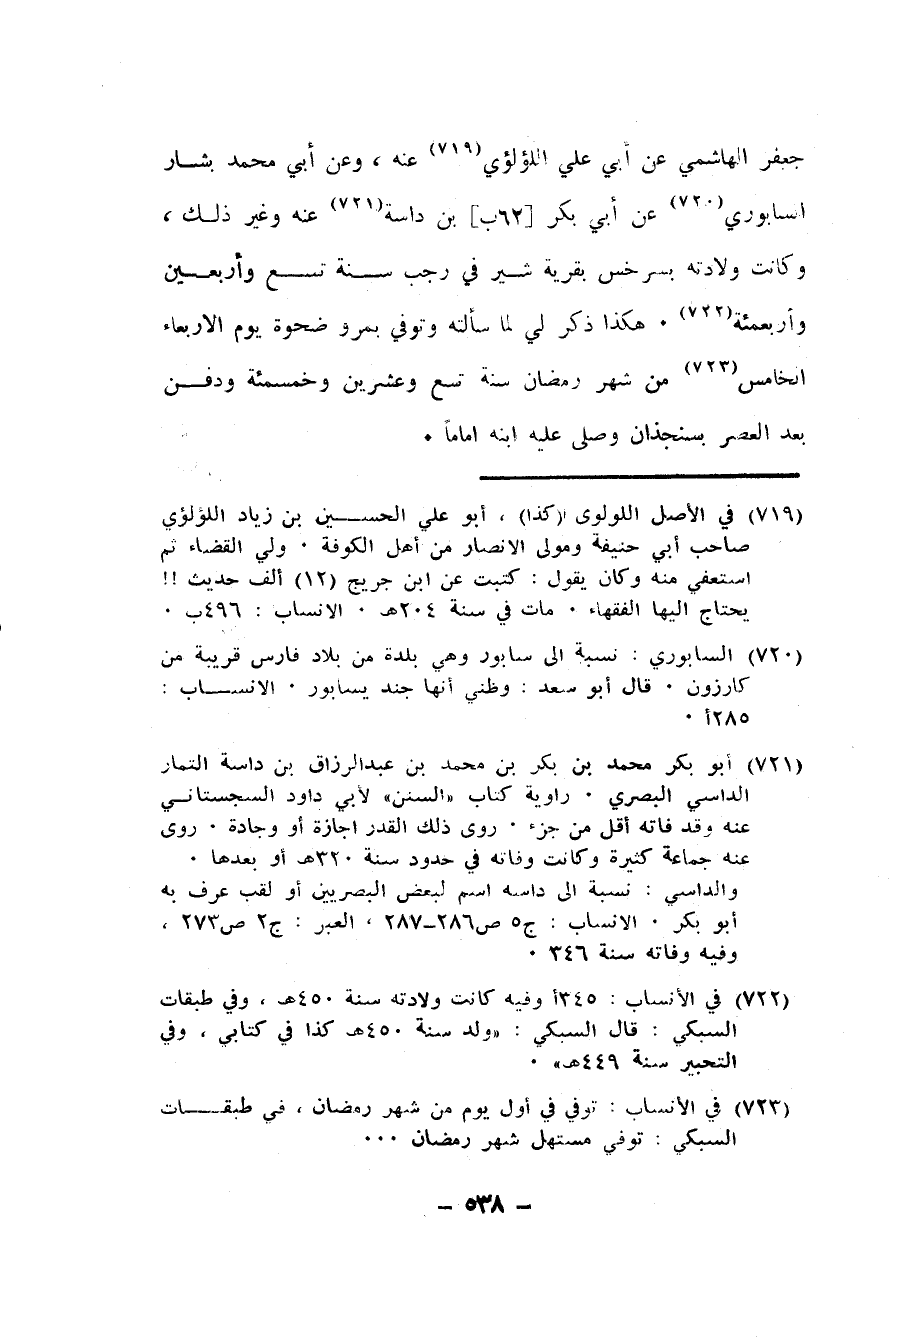 جعفر الهاشمي عن أبي علي اللؤلؤي(٧١٩) عنه ، وعن أبي محمد بشار
السابوري(٧٢٠) عن أبي بكر [٦٢ب] بن داسة(٧٢١) عنه وغير ذلك ،
وكانت ولادته بسرخس بقرية شير في رجب سنة تسع وأربعين
وأربعمئة(٧٢٢) . هكذا ذكر لي لما سألته وتوفي بمرو ضحوة يوم الاربعاء
الخامس(٧٢٣) من شهر رمضان سنة تسع وعشرين وخمسمئة ودفن
بعد العصر بسنجذان وصلى عليه ابنه اماماً .
(٧١٩) في الأصل اللولوى (كذا) ، أبو علي الحسين بن زياد اللؤلؤي
صاحب أبي حنيفة ومولى الانصار من أهل الكوفة . ولي القضاء ثم
استعفي منه وكان يقول : كتبت عن ابن جريج (١٢) ألف حديث !!
يحتاج اليها الفقهاء . مات في سنة ٢٠٤هـ . الانساب : ٤٩٦ب .
(٧٢٠) السابوري : نسبة الى سابور وهي بلدة من بلاد فارس قريبة من
كارزون . قال أبو سعد : وظني أنها جند يسابور . الانساب :
٢٨٥أ .
(٧٢١) أبو بكر محمد بن بكر بن محمد بن عبدالرزاق بن داسة التمار
الداسي البصري . راوية كتاب «السنن» لأبي داود السجستاني
عنه وقد فاته أقل من جزء . روى ذلك القدر اجازة أو وجادة . روى
عنه جماعة كثيرة وكانت وفاته في حدود سنة ٣٢٠هـ أو بعدها .
والداسي : نسبة الى داسه اسم لبعض البصريين أو لقب عرف به
أبو بكر . الانساب : ج٥ ص٢٨٦-٢٨٧ ، العبر : ج٢ ص٢٧٣ ،
وفيه وفاته سنة ٣٤٦ .
(٧٢٢) في الأنساب : ٣٤٥أ وفيه كانت ولادته سنة ٤٥٠هـ ، وفي طبقات
السبكي : قال السبكي : «ولد سنة ٤٥٠هـ كذا في كتابي ، وفي
التحبير سنة ٤٤٩هـ» .
(٧٢٣) في الأنساب : توفي في أول يوم من شهر رمضان ، في طبقات
السبكي : توفي مستهل شهر رمضان ...
- ٥٣٨ -